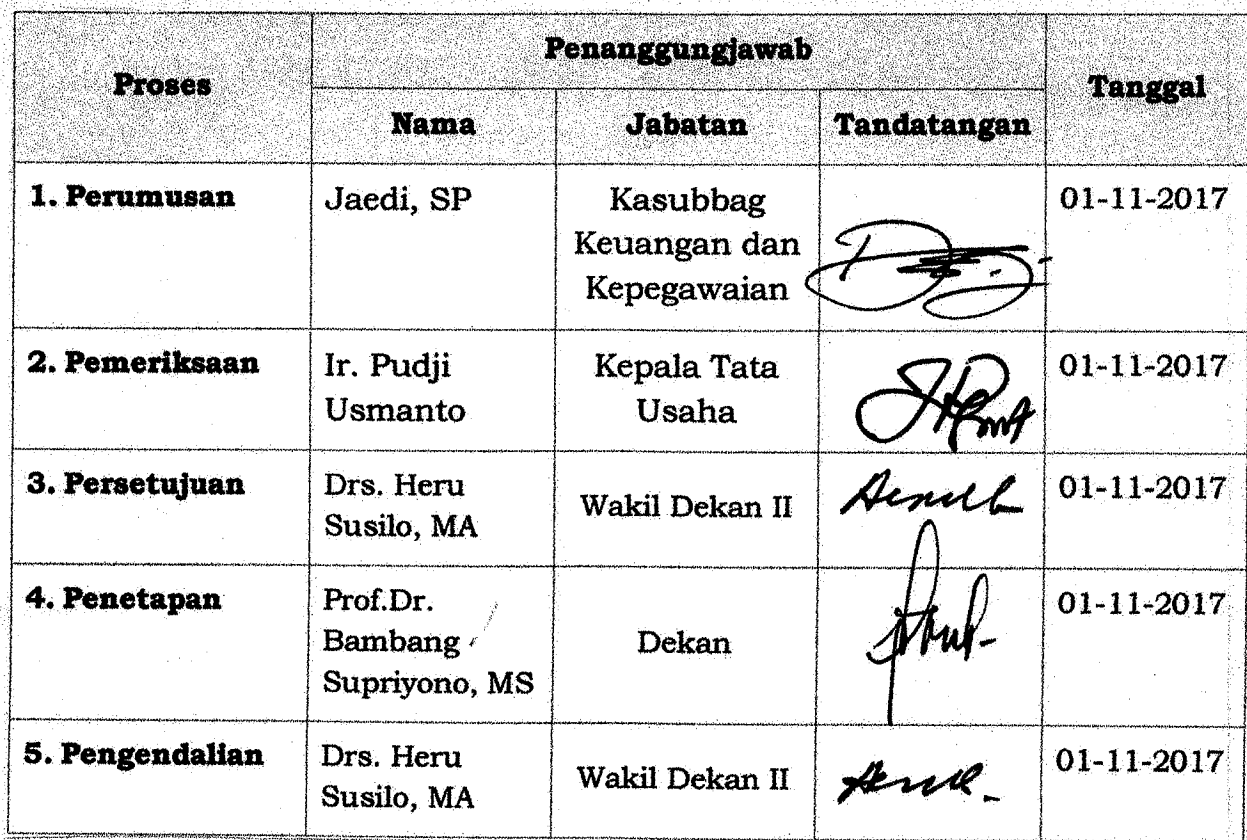 Proses
Penanggungjawab
Tanggal
Nama
Jabatan
Tandatangan
1. Perumusan
Jaedi, SP
Kasubbag
Keuangan dan
Kepegawaian
01-11-2017
2. Pemeriksaan
Ir. Pudji
Usmanto
Kepala Tata
Usaha
01-11-2017
3. Persetujuan
Drs. Heru
Susilo, MA
Wakil Dekan II
01-11-2017
4. Penetapan
Prof.Dr.
Bambang
Supriyono, MS
Dekan
01-11-2017
5. Pengendalian
Drs. Heru
Susilo, MA
Wakil Dekan II
01-11-2017